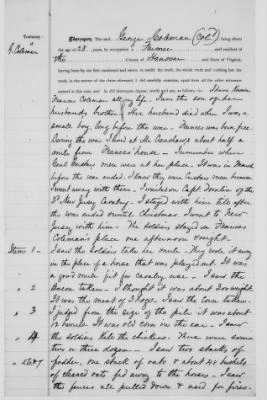 Testimony
of
G. Coleman
Thereupon, The said George Coleman (Col'd) being about
the age of 28 years, by occupation a Farmer and resident of
the County of Hanover and State of Virginia,
having been by me first cautioned and sworn to testify the truth, the whole truth and nothing but the
truth, in the matter of the claim aforesaid, I did carefully examine, apart from all the other witnesses
named in this case, and he did thereupon depose, testify and say, as follows, viz: I have known
Frances Coleman all my life. I am the son of her
husbands brother. Her husband died when I was a
small boy, long before the war. Frances was born free.
During the war I lived at about half a
mile from Frances house. I remember when
Genl Custers men were at her place. It was in March
before the war ended. I knew they were Custers men because
I went away with them. I with Capt of the
3d New Jersey Cavalry. I stayed with him till after
the war ended & until Christmas. I went to New
Jersey with him. The soldiers stayed on Frances
Coleman's place one afternoon & night.
Item 1 - I saw the soldiers take her mule. They rode it away
in the place of a horse that was played out. It was
a good mule fit for cavalry use - I saw the
" 2 Bacon taken - I thought it was about 300 weight
It was the meat of 3 hogs. I saw the corn taken.
" 3 I judged from the size of the pile it was about
12 barrels. It was old corn on the ear - I saw
" 4 the soldiers take the chickens. There were some
two or three dozen - I saw two stacks of
5 & 7 fodder, one stack of oats & about 40 bushels
of cleaned oats fed away to the horses - I saw
the fences all pulled down & used for fires-